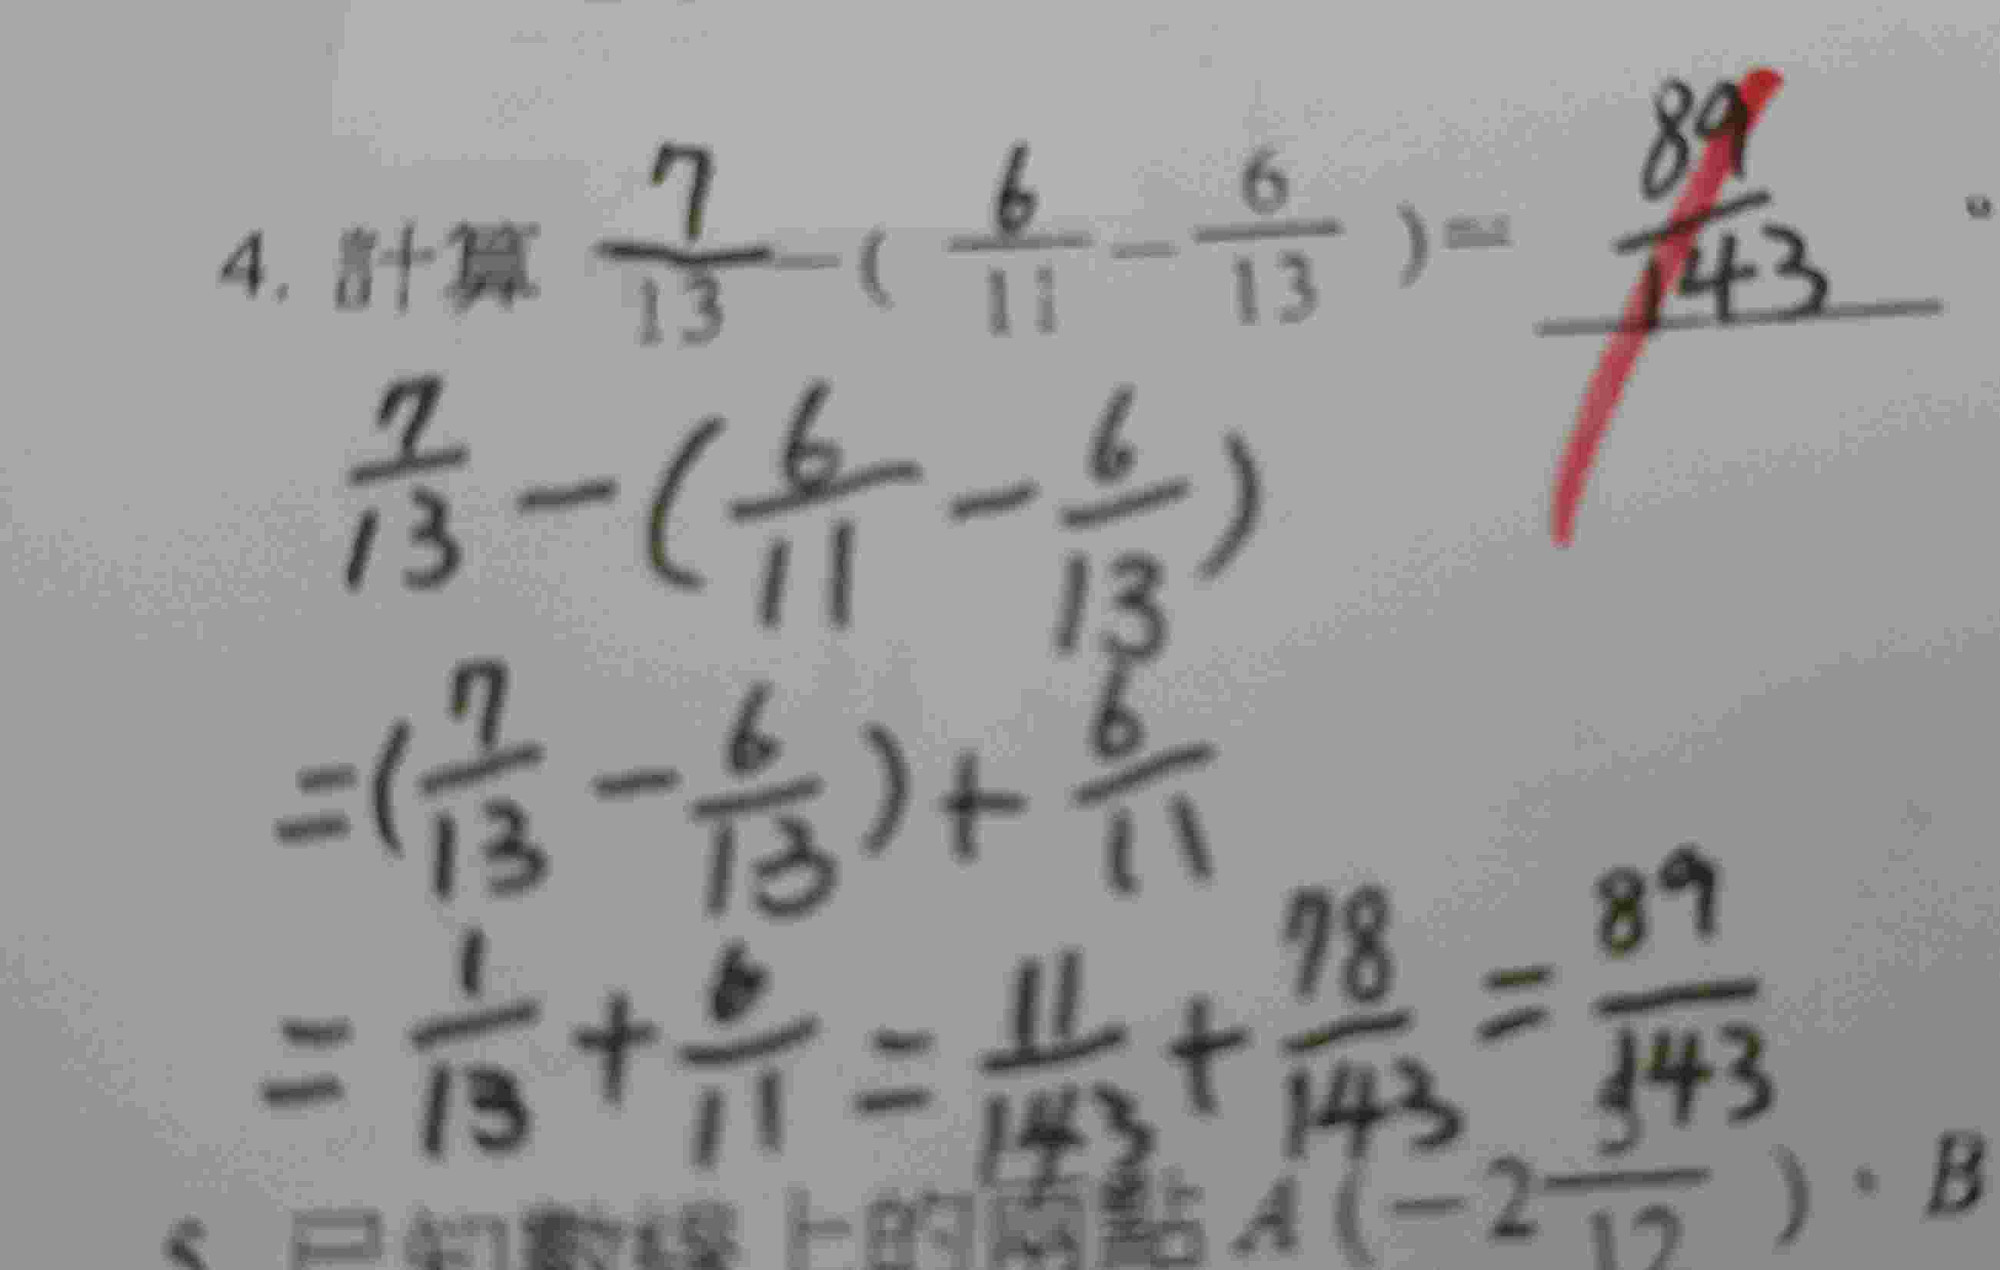 4. 計算 7/13 - ( 6/11 - 6/13 ) = 89/143 。
7/13 - ( 6/11 - 6/13 )
= ( 7/13 - 6/13 ) + 6/11
= 1/13 + 6/11 = 11/143 + 78/143 = 89/143
5. 已知數線上的兩點 A ( -2 3/12 ) 、 B